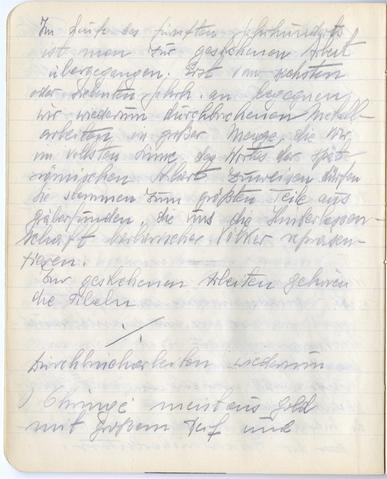 Im Laufe des fünften Jahrhunderts
ist man zur gestochenen Arbeit
übergegangen. Erst vom sechsten
oder siebenten Jahrh. an begegnen
wir wiederum durchbrochenen Metall-
arbeiten in großer Menge, die wir
im vollsten Sinne des Wortes der spät-
römischen Arbeit zuweisen dürfen
Sie stammen zum größten Teile aus
Gräberfunden, die uns die Hinterlassen-
schaft barbarischer Völker repräsen-
tieren.
Zur gestochenen Arbeiten gehören
die Fibeln
Durchbrucharbeiten wiederum
1) Ohrringe meist aus Gold
mit großem Reif und